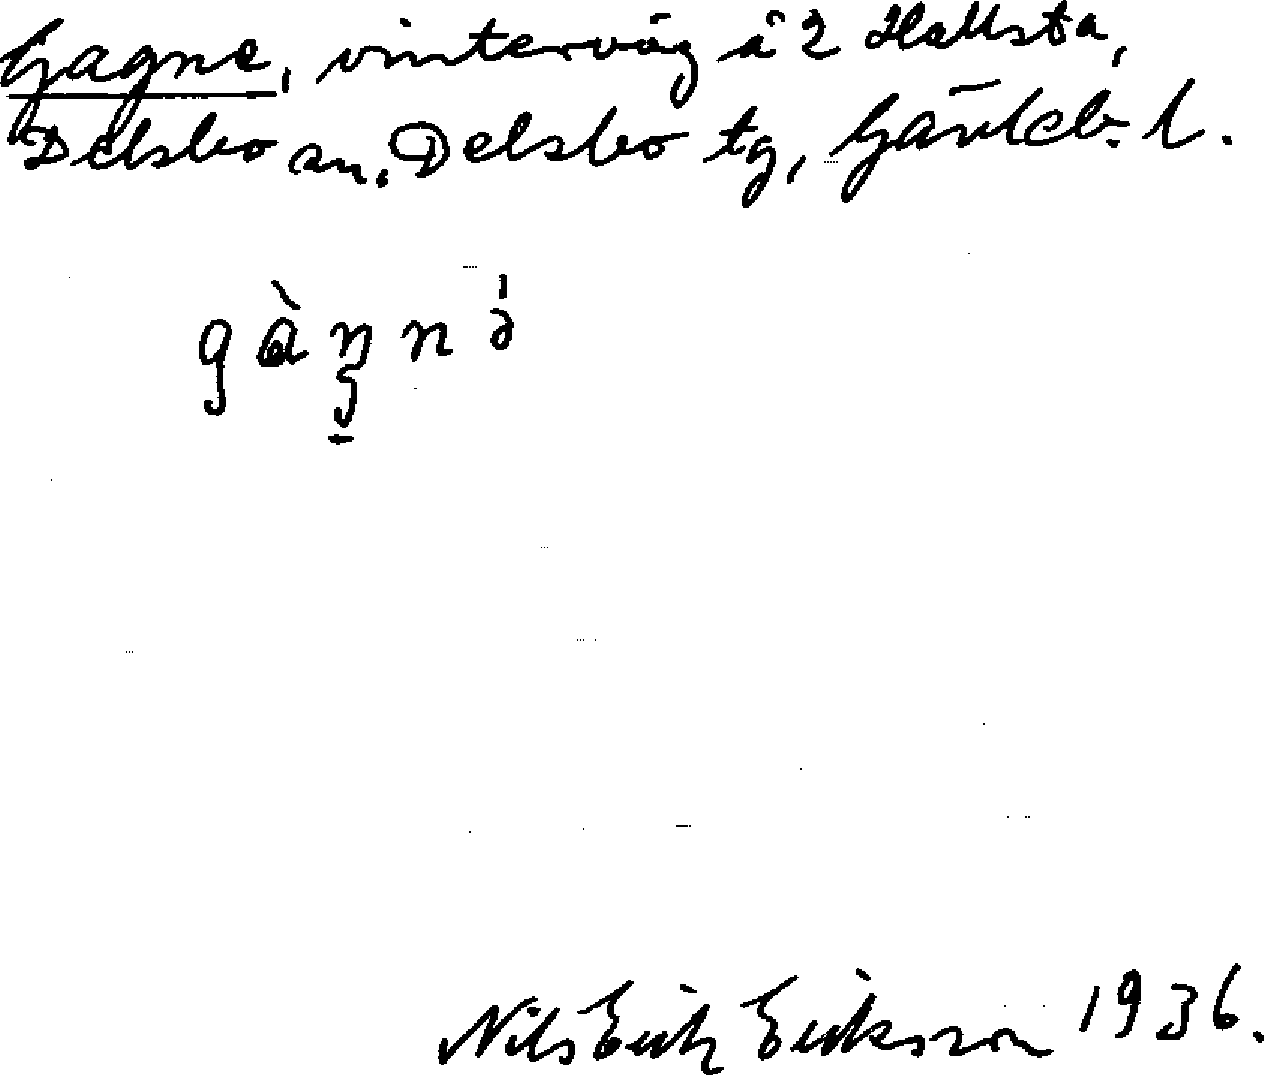 Gagne, vinterväg å 2 Hallsta,
Delsbo sn. Delsbo tg, Gävleb. l.
gàŋnə̍
Nils Erik Eriksson 1936.